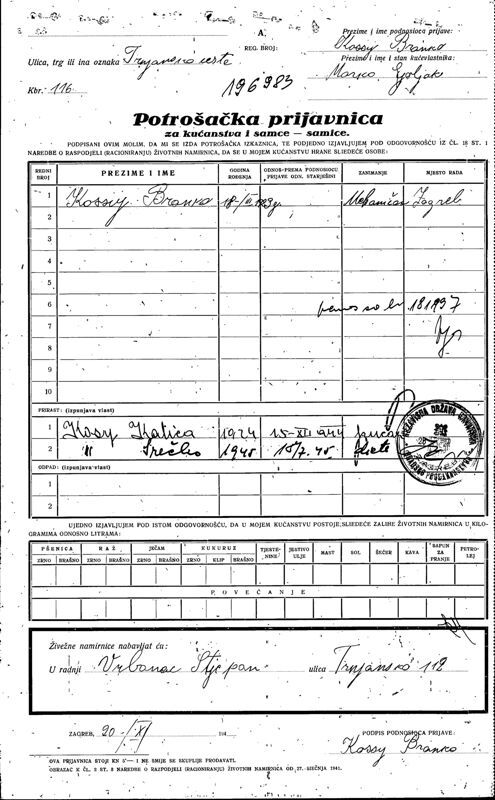 A.
REG. BROJ:
196983
Prezime i ime podnosioca prijave:
Kossy Branko
Prezime i ime i stan kućevlastnika:
Marko
Ulica, trg ili ina oznaka Trnjanska cesta
Kbr. 116.
Potrošačka prijavnica
za kućanstva i samce — samice.
PODPISANI OVIM MOLIM, DA MI SE IZDA POTROŠAČKA IZKAZNICA, TE PODJEDNO IZJAVLJUJEM POD ODGOVORNOŠĆU IZ ČL. 18 ST. 1
NAREDBE O RASPODJELI (RACIONIRANJU) ŽIVOTNIH NAMIRNICA, DA SE U MOJEM KUĆANSTVU HRANE SLIEDEĆE OSOBE:
REDNI BROJ PREZIME I IME GODINA ROĐENJA ODNOS-PREMA PODNOSIOCU PRIJAVE ODN. STARJEŠINI ZANIMANJE MJESTO RADA
1 Kossy Branko 18- Mehaničar Zagreb
2
3
4
5
6
181997
7
8
9
10
PRIRAST: (izpunjava vlast)
1 Kossy Katica 1924 15-XII 1944
2 " Srećko 1945 15/7. 45. dijete
NEZAVISNA DRŽAVA HRVATSKA
ODPAD: (izpunjava vlast)
1
2
UJEDNO IZJAVLJUJEM POD ISTOM ODGOVORNOŠĆU, DA U MOJEM KUĆANSTVU POSTOJE SLIEDEĆE ZALIHE ŽIVOTNIH NAMIRNICA U KILO-
GRAMIMA ODNOSNO LITRAMA:
PŠENICA RAŽ JEČAM KUKURUZ TJESTE-NINE JESTIVO ULJE MAST SOL ŠEĆER KAVA SAPUN ZA PRANJE PETRO-LEJ
ZRNO BRAŠNO ZRNO BRAŠNO ZRNO BRAŠNO ZRNO KLIP BRAŠNO
POVEĆANJE
Živežne namirnice nabavljat ću:
U radnji Vrbanac Stjepan ulica Trnjanska 112
ZAGREB, 20-/XI 194
PODPIS PODNOSIOCA PRIJAVE:
Kossy Branko
OVA PRIJAVNICA STOJI KN 0·— I NE SMIJE SE SKUPLJE PRODAVATI.
OBRAZAC K ČL. 2 ST. 2 NAREDBE O RAZPODJELI (RACIONIRANJU) ŽIVOTNIH NAMIRNICA OD 27. SIEČNJA 1941.